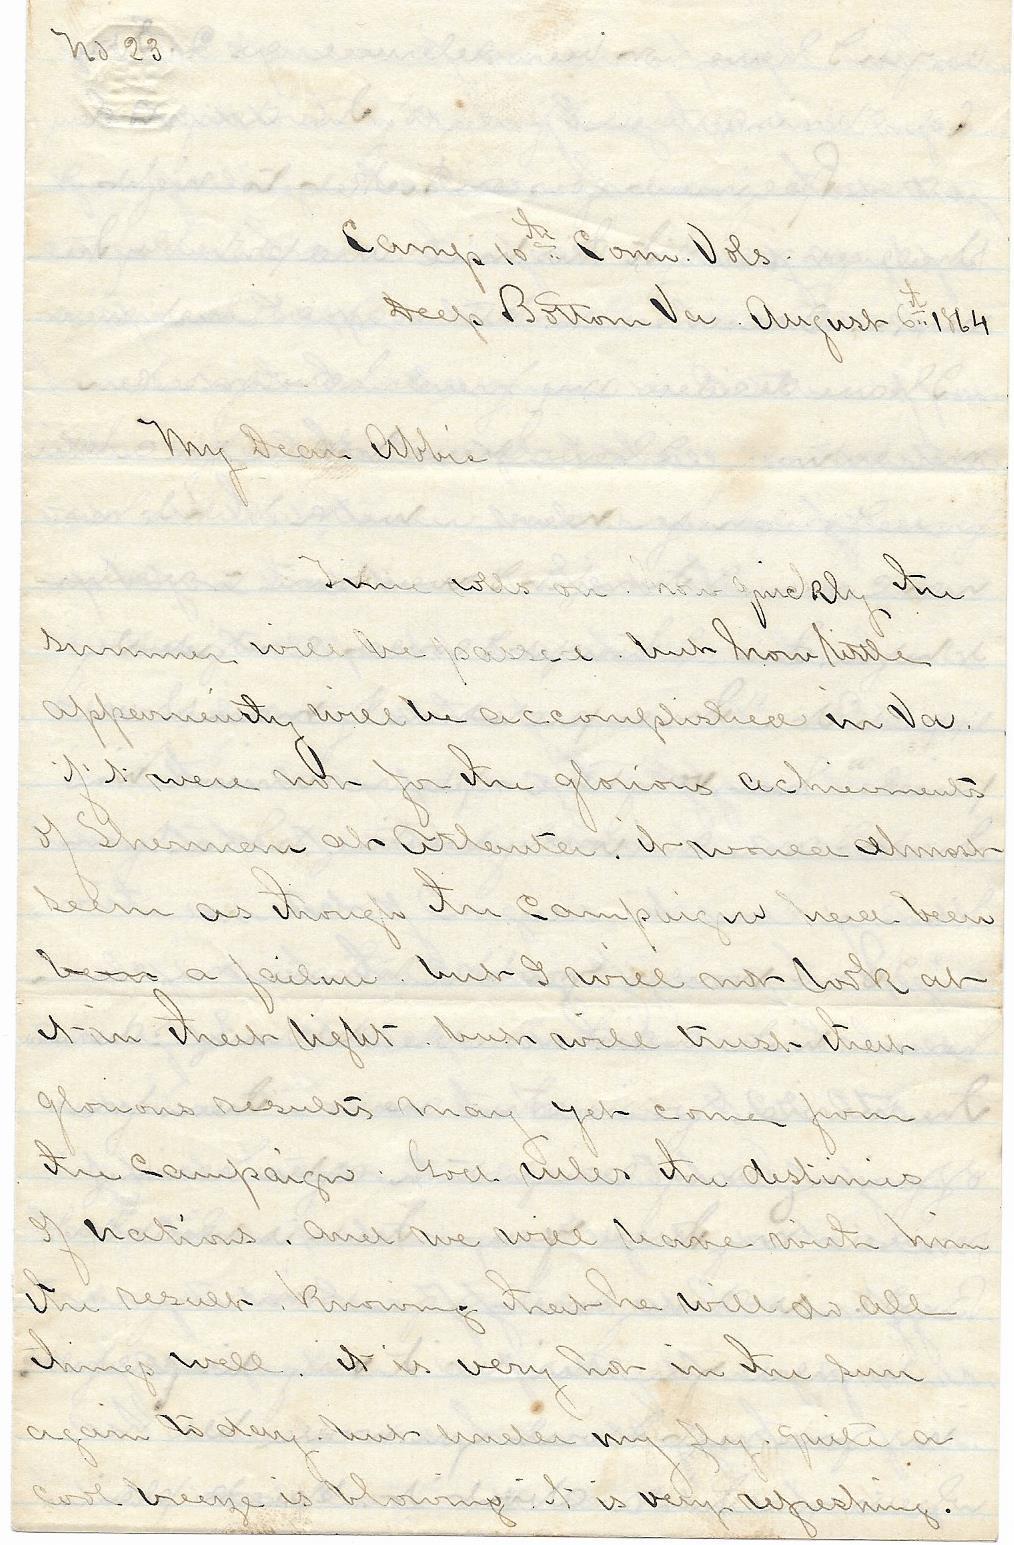 No 23
Camp 10th Conn. Vols.
Deep Bottom Va. August 6th 1864
My Dear Abbie
Time rolls on. how quickly the
summer will be passed. but how little
apparently will be accomplished in Va.
if it were not for the glorious achievments
of Sherman at Atlanta. it would almost
seem as though the campaign had been
been a failure. but I will not look at
it in that light. but will trust that
glorious results may yet come from
the campaign. God rules the destinies
of nations. and we will leave with him
the result. knowing that he will do all
things well. it is very hot in the sun
again to day. but under my fly. quite a
cool breeze is blowing. it is very refreshing.